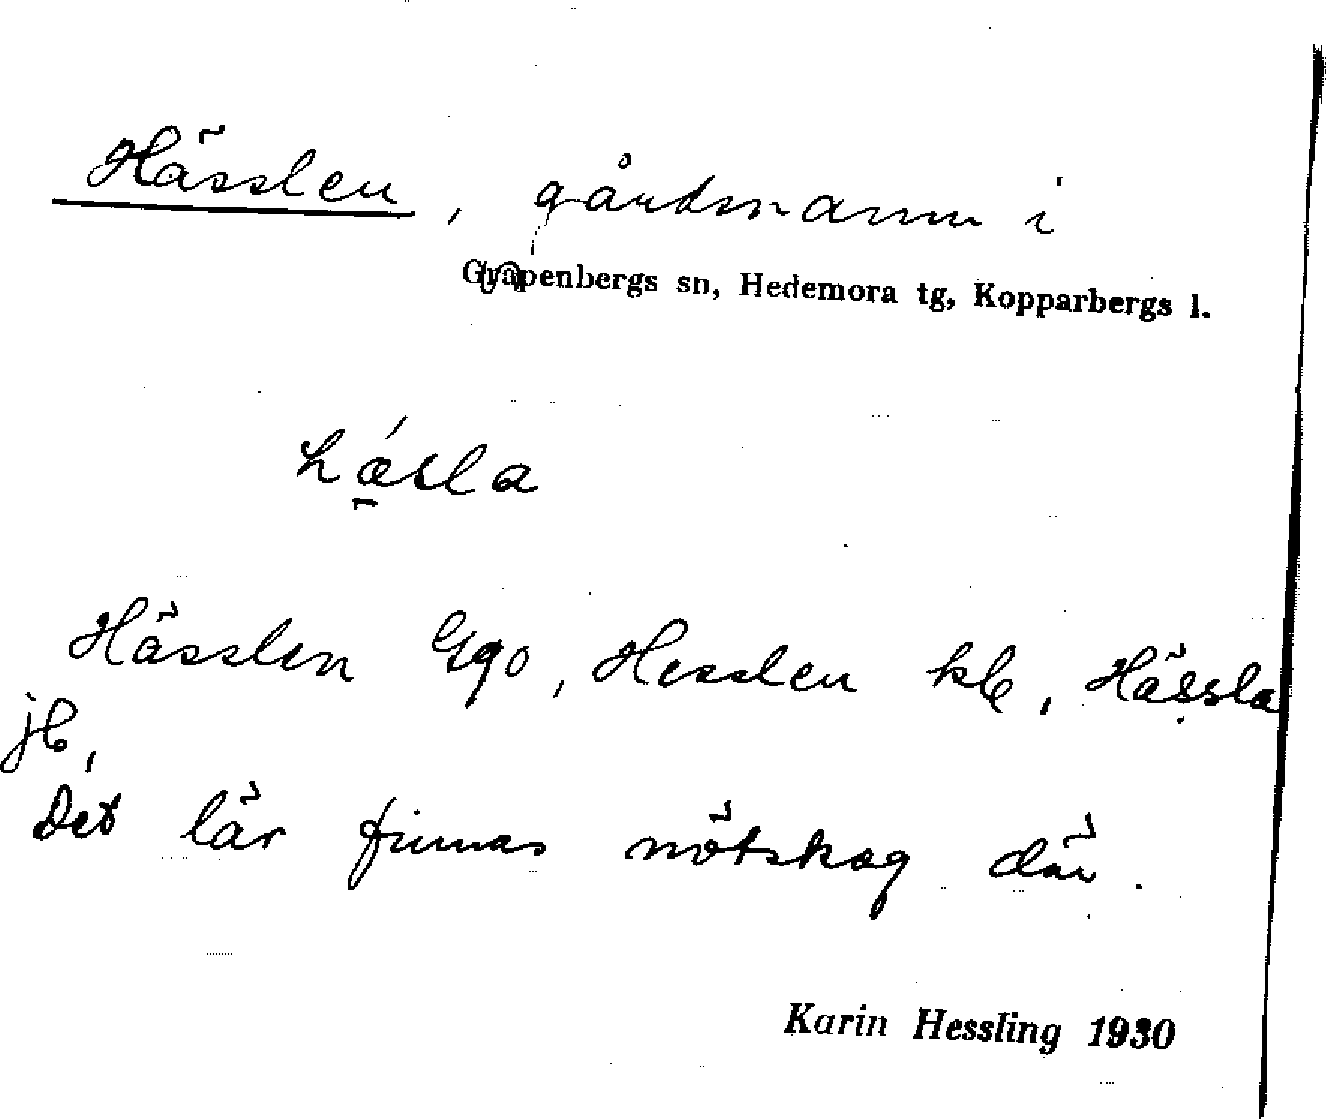 Hässlen, gårdsnamn i
Grapenbergs sn, Hedemora tg, Kopparbergs l.
hǽsla
Hässlen Ggo, Hesslen kb, Hässla
jb,
Det lär finnas nötskog där.
Karin Hessling 1930